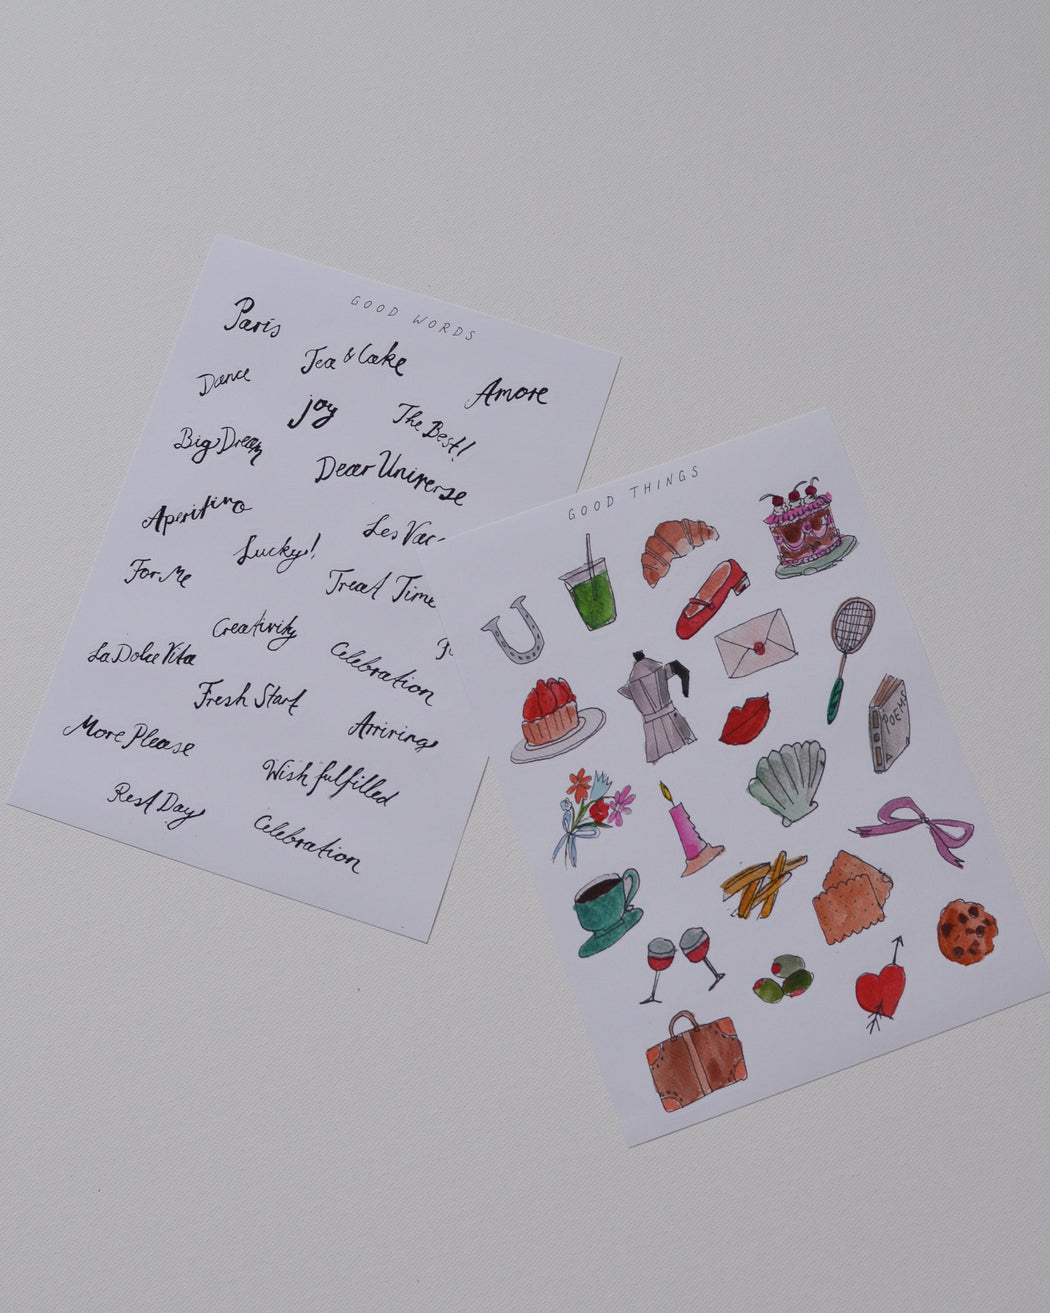 GOOD WORDS
Paris
Tea & Cake
Dance
Amore
Joy
The Best!
Big Dream
Dear Universe
Aperitivo
Les Vac
Lucky!
For Me
Treat Time
Creativity
La Dolce Vita
Celebration
Fresh Start
Arriving
More Please
Wish fulfilled
Rest Day
Celebration
GOOD THINGS
POEMS